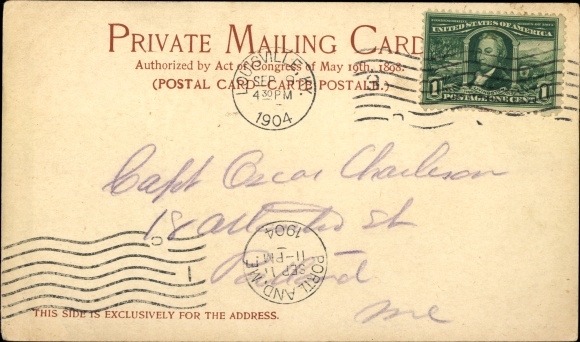 PRIVATE MAILING CARD
Authorized by Act of Congress of May 19th, 1898.
(POSTAL CARD-CARTE POSTALE.)
UNITED STATES OF AMERICA
1 1
POSTAGE ONE CENT
LOUISVILLE, KY.
SEP 9
4 30 PM
1904
Capt Oscar Charleson
18 St
Portland
Me
PORTLAND, ME.
SEP 11
11-PM
1904
THIS SIDE IS EXCLUSIVELY FOR THE ADDRESS.